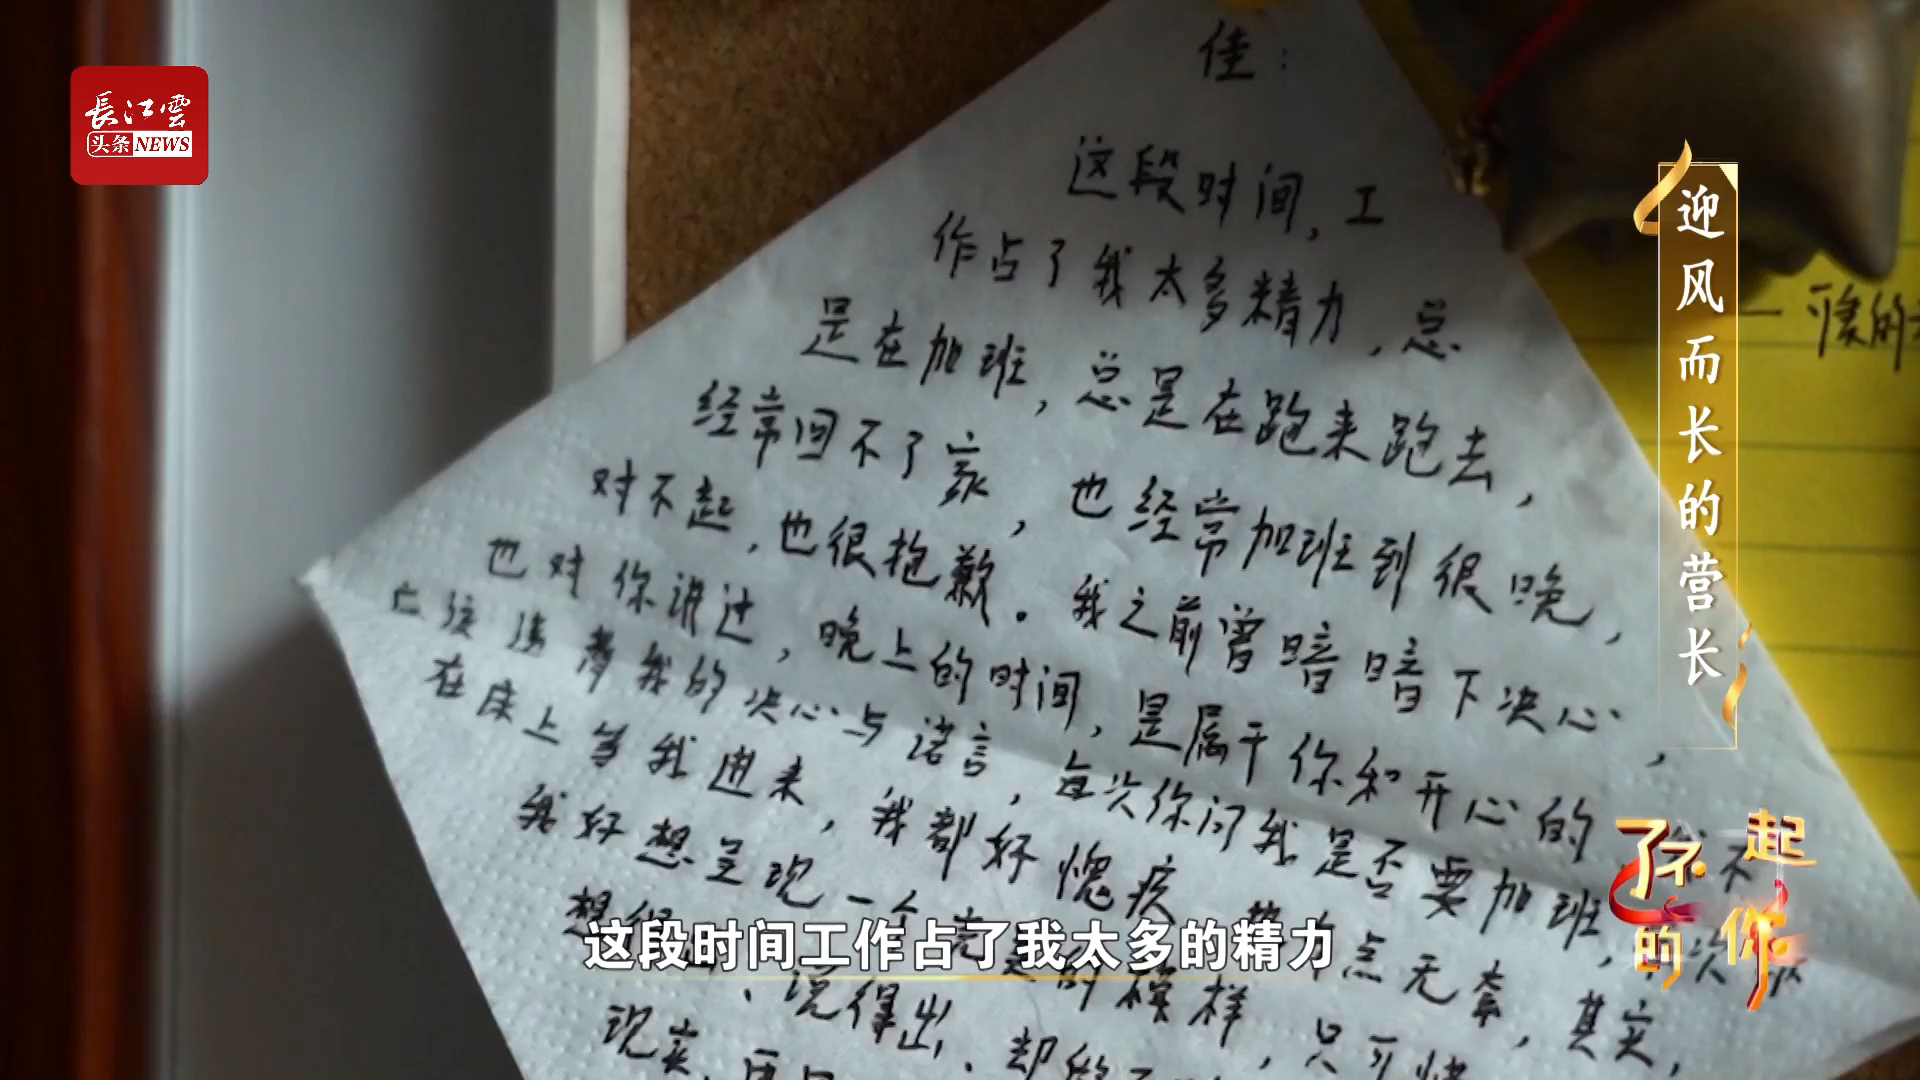 長江雲
头条NEWS
佳：
这段时间，工
作占了我太多精力，总
是在加班，总是在跑来跑去，
经常回不了家，也经常加班到很晚，
对不起，也很抱歉。我之前曾暗暗下决心，
也对你讲过，晚上的时间，是属于你和开心的
我的决心与诺言，每次你问我是否要加班，
在床上等我进来，我都好愧疚
我好想呈现一个 的模样，只可
说得出、却
现实
迎风而长的营长
了不起
的你
这段时间工作占了我太多的精力